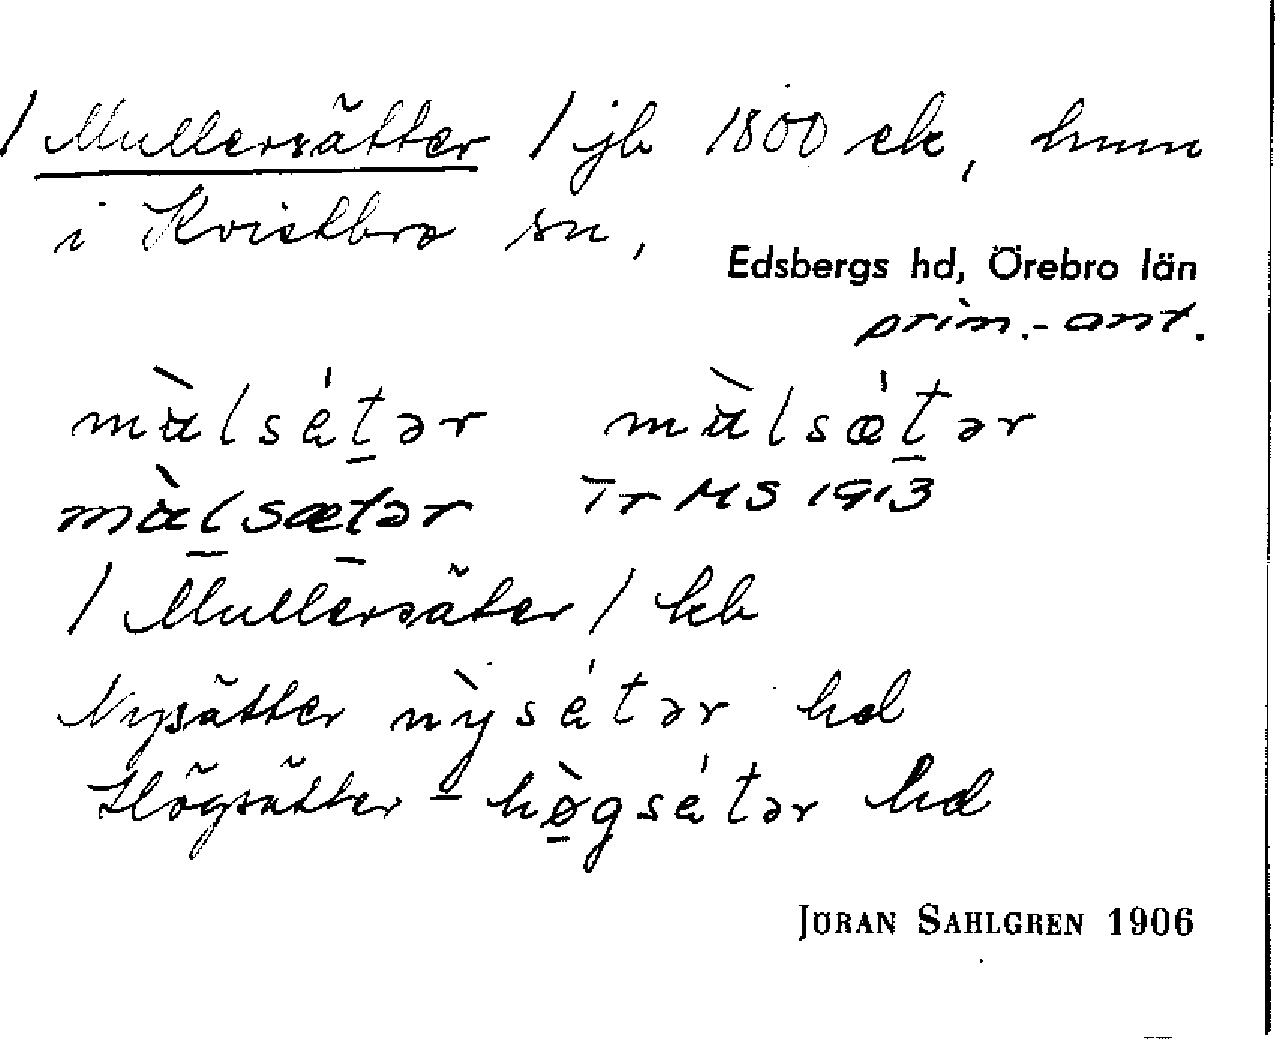 / Mullersätter / jb 1800 ek, hmm
i Kvistbro sn,
Edsbergs hd, Örebro län
prim.-ant.
màlsétər màlsǽtər
màlsætər Tr MS 1913
/ Mullersäter / kb
Nysätter nỳsétər hd
Högsätter - hø̀gsétər hd
JÖRAN SAHLGREN 1906